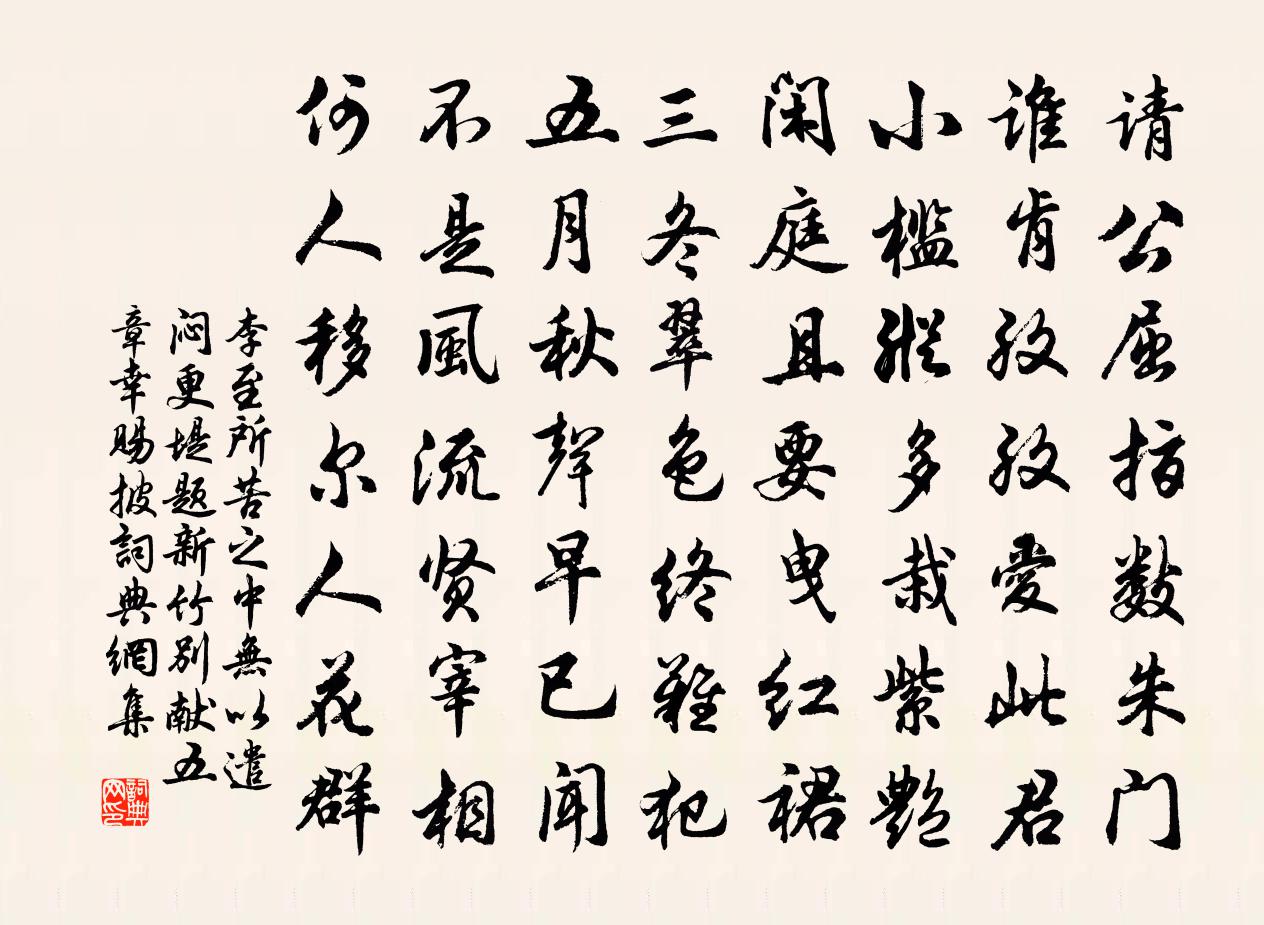 请公屈指数朱门
谁肯孜孜愛此君
小槛縱多栽紫艷
闲庭且要曳红裙
三冬翠色终難犯
五月秋聲早已闻
不是風流贤宰相
何人移尔人花群
李至所苦之中無以遣
闷更堤题新竹别献五
章幸賜披詞典網集
詞典网印